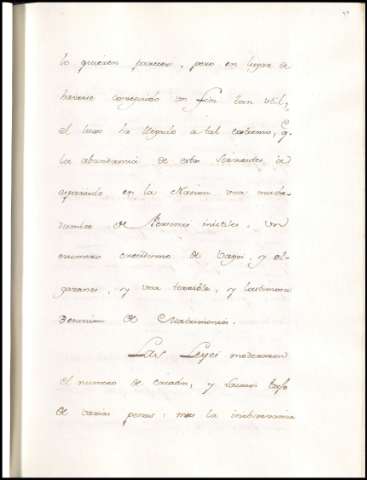 lo quieren parecer, pero en lugar de
haverse conseguido un fin tan util,
el luxo ha llegado a tal extremo, q.
la abundancia de estos Sirvientes, ha
separado en la Nacion una muche-
dumbre de Personas inutiles, un
numero crecidisimo de vagos, y ol-
gazanes, y una terrible, y lastimosa
de Matrimonios.
Las Leyes moderaron
el numero de criados, y Lacaios bajo
de varias penas; mas la inobservancia